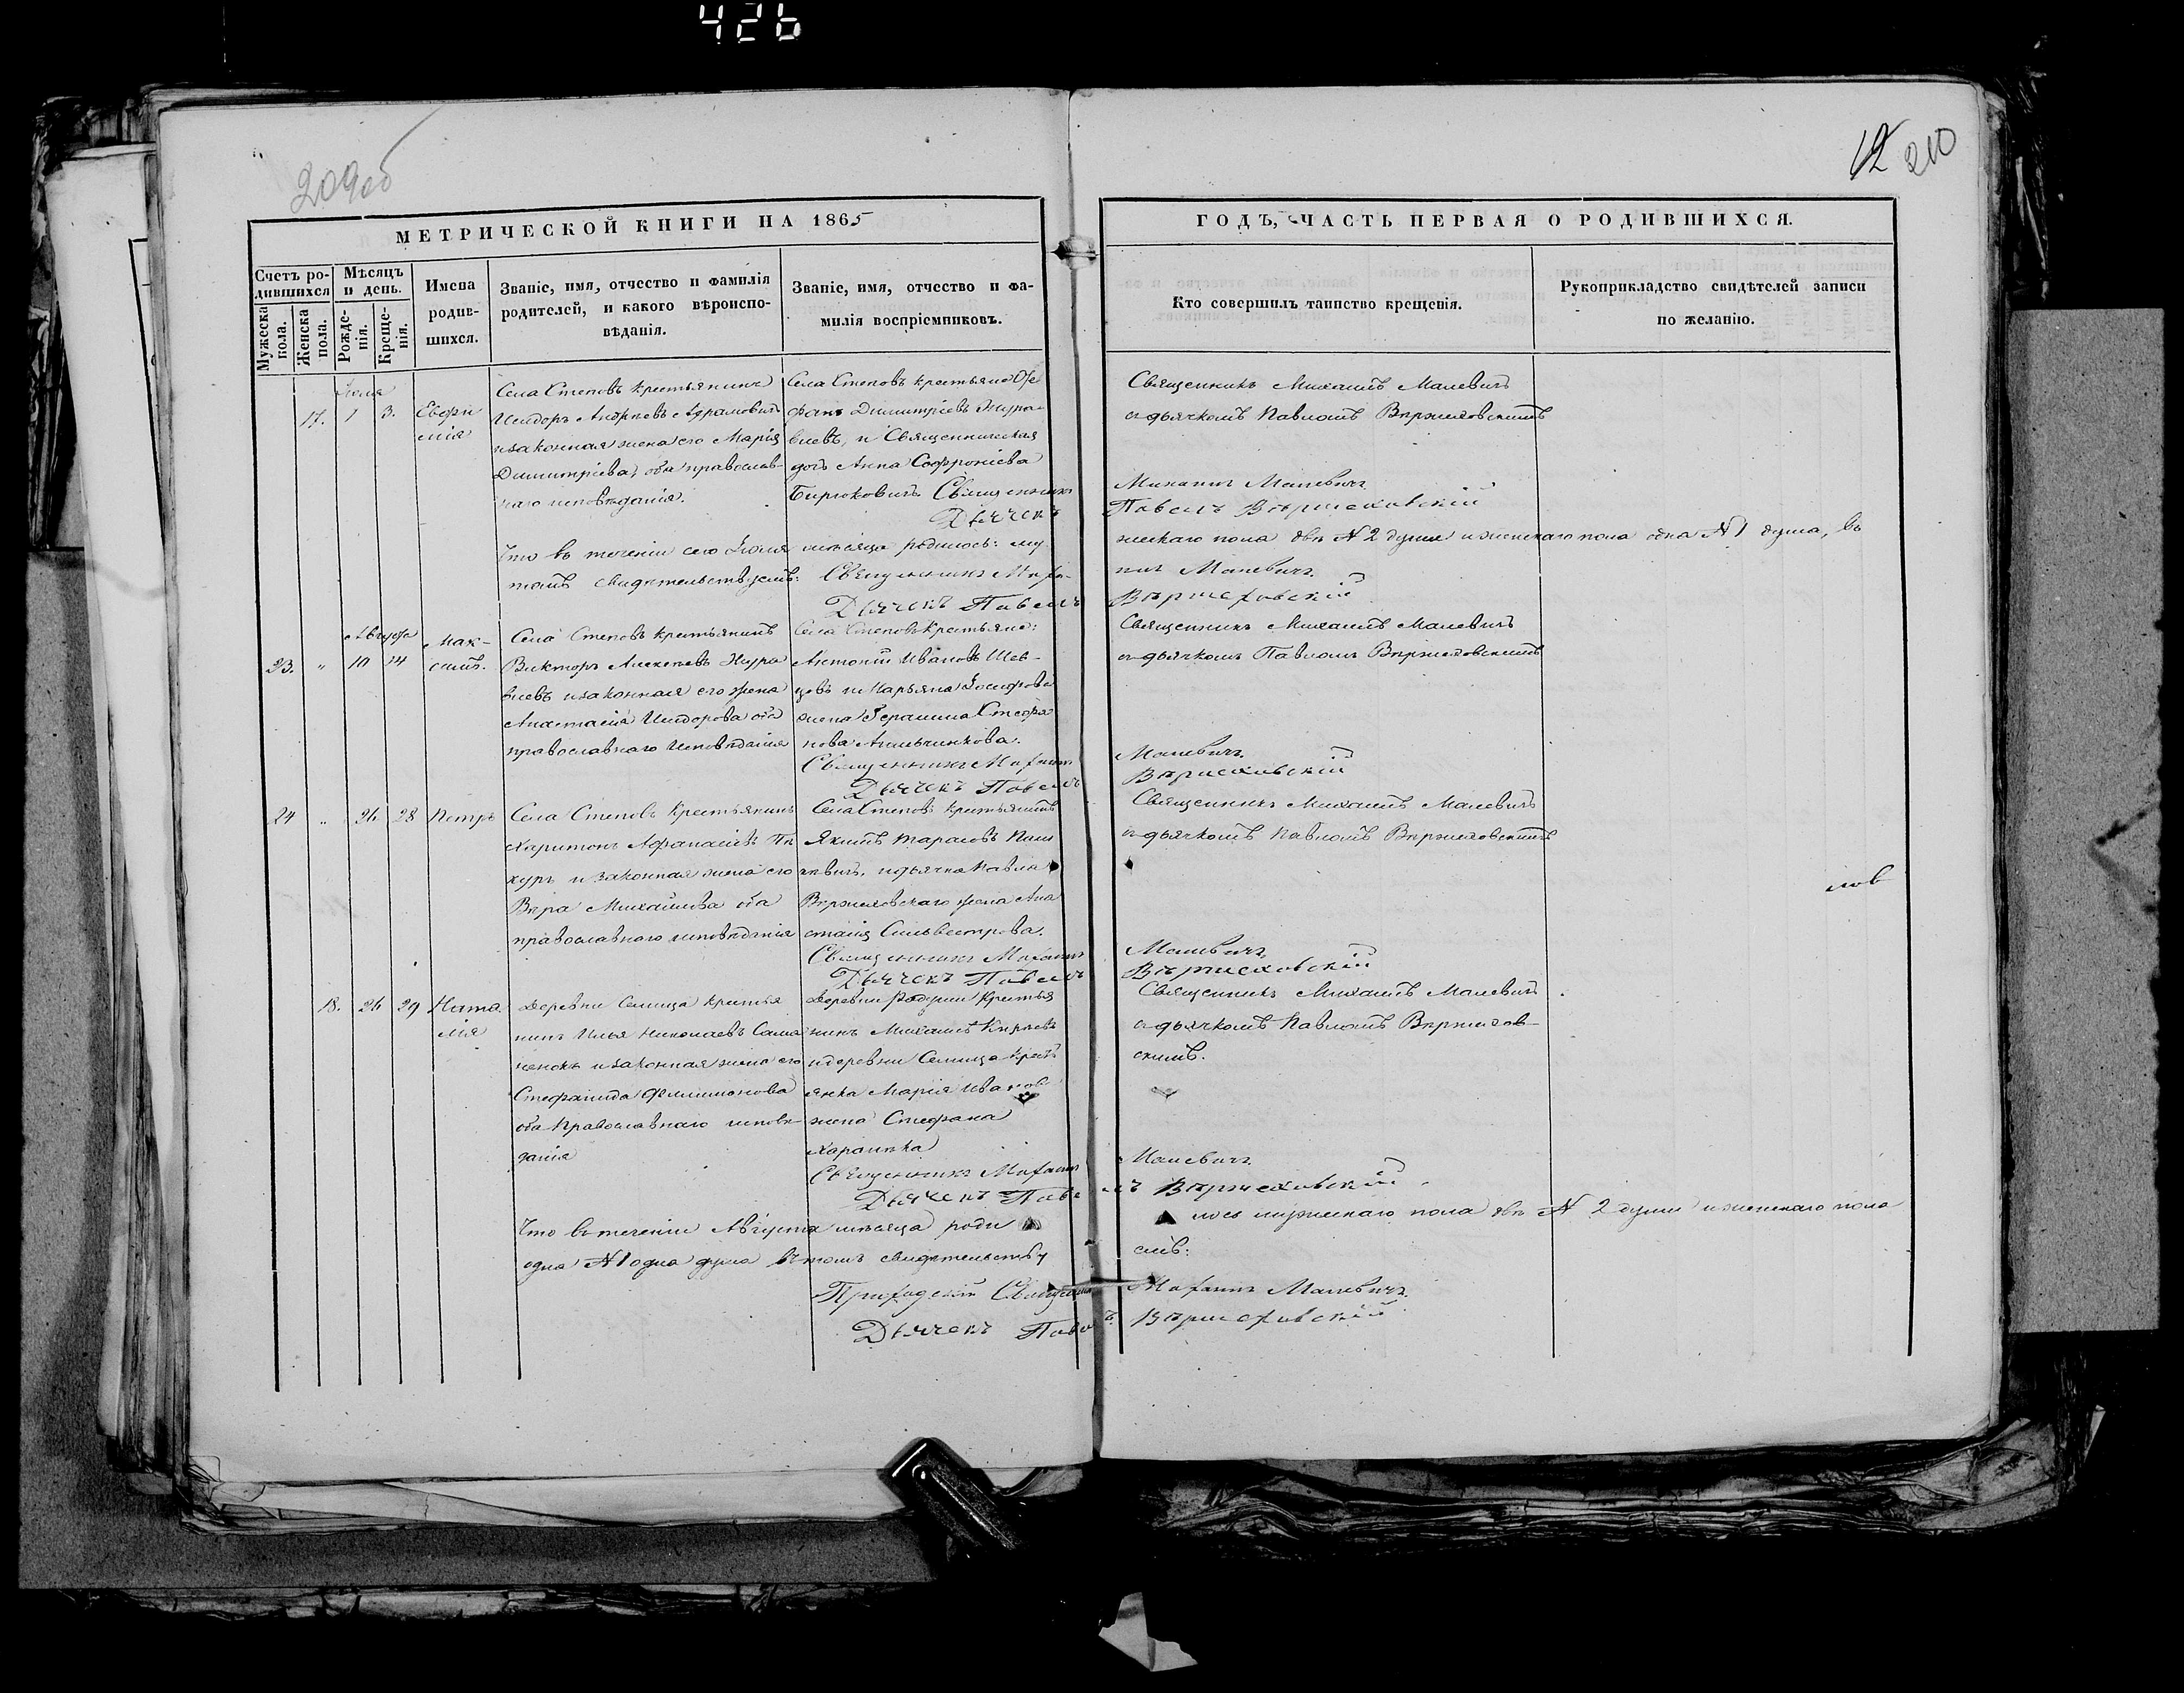 426
209об
12 210
МЕТРИЧЕСКОЙ КНИГИ НА 1865
ГОДЪ, ЧАСТЬ ПЕРВАЯ О РОДИВШИХСЯ.
Счетъ ро-
дившихся
Мужеска
пола.
Женска
пола.
Мѣсяцъ
и день.
Рожде-
нія.
Креще-
нія.
Имена
родив-
шихся.
Званіе, имя, отчество и фамилія
родителей, и какого вѣроиспо-
вѣданія.
Званіе, имя, отчество и фа-
милія воспріемниковъ.
Кто совершилъ таинство крещенія.
Рукоприкладство свидѣтелей записи
по желанію.
Іюля
17. 1 3.
Евфи
мія
Села Степовъ крестьянинъ
Исидоръ Андреевъ Абрамовичъ
и законная жена его Марія
Димитріева, оба православ-
наго исповѣданія.
Села Степовъ крестьянинъ
Димитріевъ Жура-
влевъ, и Священническая
дочь Анна Софроніева
Бирюковичъ. Священникъ
Дьячекъ
Священникъ Михаилъ Малевичъ
съ дьячкомъ Павломъ Вержеховскимъ
Михаилъ Малевичъ
Павелъ Вержеховскій
Что въ теченіи сего Іюля мѣсяца родилось: му
жескаго пола двѣ № 2 души и женскаго пола одна № 1 душа, въ
томъ свидѣтельствуемъ: Священникъ Миха-
илъ Малевичъ.
Дьячекъ Павелъ
Вержеховскій
Августа
23. " 10 14
Мак-
симъ.
Села Степовъ крестьянинъ
Викторъ Алексѣевъ Жура
влевъ и законная его жена
Анастасія Исидорова оба
православнаго исповѣданія
Села Степовъ крестьяне:
Антоній Ивановъ Шев-
цовъ и Марьяна Іосифова
жена Герасима Стефа
нова
Священникъ Михаилъ
Дьячекъ Павелъ
Священникъ Михаилъ Малевичъ
съ дьячкомъ Павломъ Вержеховскимъ
Малевичъ.
Вержеховскій
24 " 26 28 Петръ
Села Степовъ крестьянинъ
Харитонъ Афанасіевъ Пе
куръ и законная жена его
Вѣра Михайлова оба
православнаго исповѣданія
Села Степовъ крестьянинъ
Якимъ Тарасовъ
и дьячка Павла
Вержеховскаго жена Ана
стасія Сильвестрова.
Священникъ Михаилъ
Дьячекъ Павелъ
Священникъ Михаилъ Малевичъ
съ дьячкомъ Павломъ Вержеховскимъ
Малевичъ
Вержеховскій
18. 26 29
Ната
лія
Деревни Селища крестья
нинъ Илья Николаевъ Сама
ненокъ и законная жена его
Стефанида Филимонова
оба православнаго исповѣ-
данія
Деревни Рудерии крестья
нинъ Михаилъ Кирѣевъ
и деревни Селища крестъ
янка Марія Иванов
жена Стефана
Харапика
Священникъ Михаилъ
Дьячекъ Паве
Священникъ Михаилъ Малевичъ
съ дьячкомъ Павломъ Вержехов-
скимъ.
Малевичъ
лъ Вержеховскій
Что въ теченіи Августа мѣсяца роди
лось мужескаго пола двѣ № 2 души и женскаго пола
одна № 1 одна душа въ томъ свидѣтельству
емъ:
Приходскій Священникъ
Михаилъ Малевичъ
Дьячекъ Павелъ
Вержеховскій